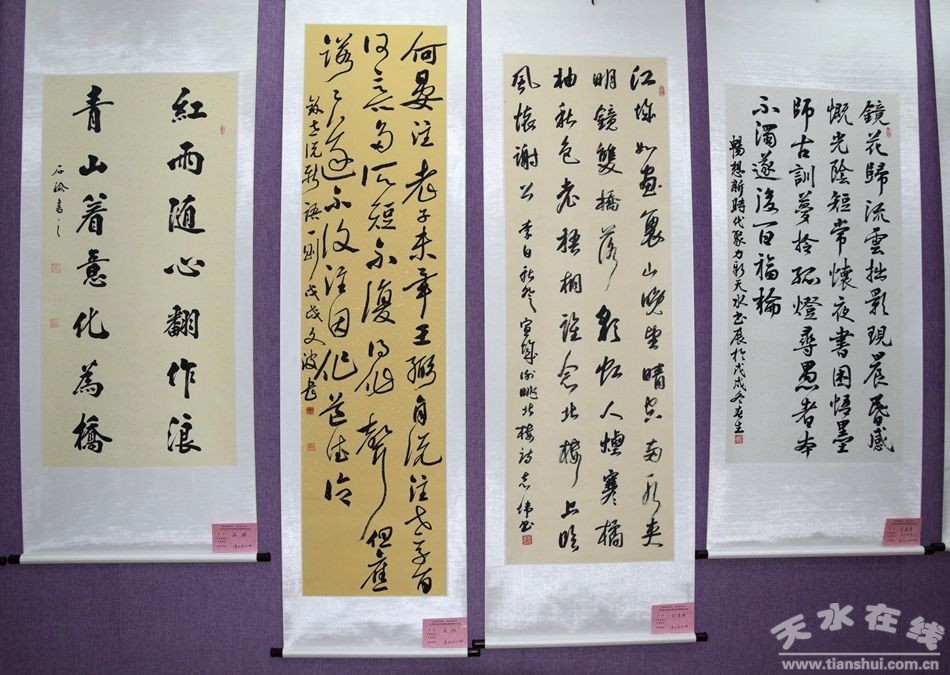 鏡花歸流雲拙影現晨昏感
慨光陰短常懷夜書困悟墨
師古訓夢拎孤燈尋愚者本
不濁遂後百福輪
暢想新時代聚力彩天水書展於戊戌冬
江城如畫裏山晚望晴空兩水夾
明鏡雙橋落彩虹人煙寒橘
柚秋色老梧桐誰念北樓上臨
風懷謝公 李白秋登宣城謝朓北樓詩志伟书
何晏注老子未畢王弼自説注老子旨
何意多所短不復得作聲但應
諾諾遂不復注因作道德論
世説新語一則戊戌文波書
紅雨随心翻作浪
青山着意化為橋
石玲書
天水在线
www.tianshui.com.cn